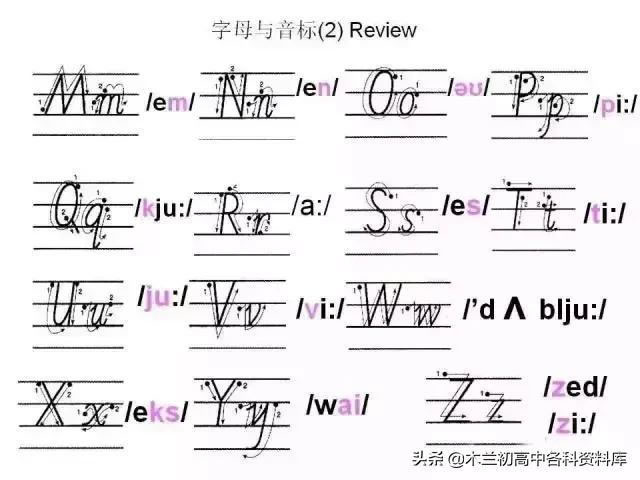 字母与音标(2) Review
Mm /em/ Nn /en/ Oo /əʊ/ Pp /pi:/
Qq /kju:/ Rr /a:/ Ss /es/ Tt /ti:/
Uu /ju:/ Vv /vi:/ Ww /'d Λ blju:/
Xx /eks/ Yy /wai/ Zz /zed/
/zi:/
头条 @木兰初高中各科资料库